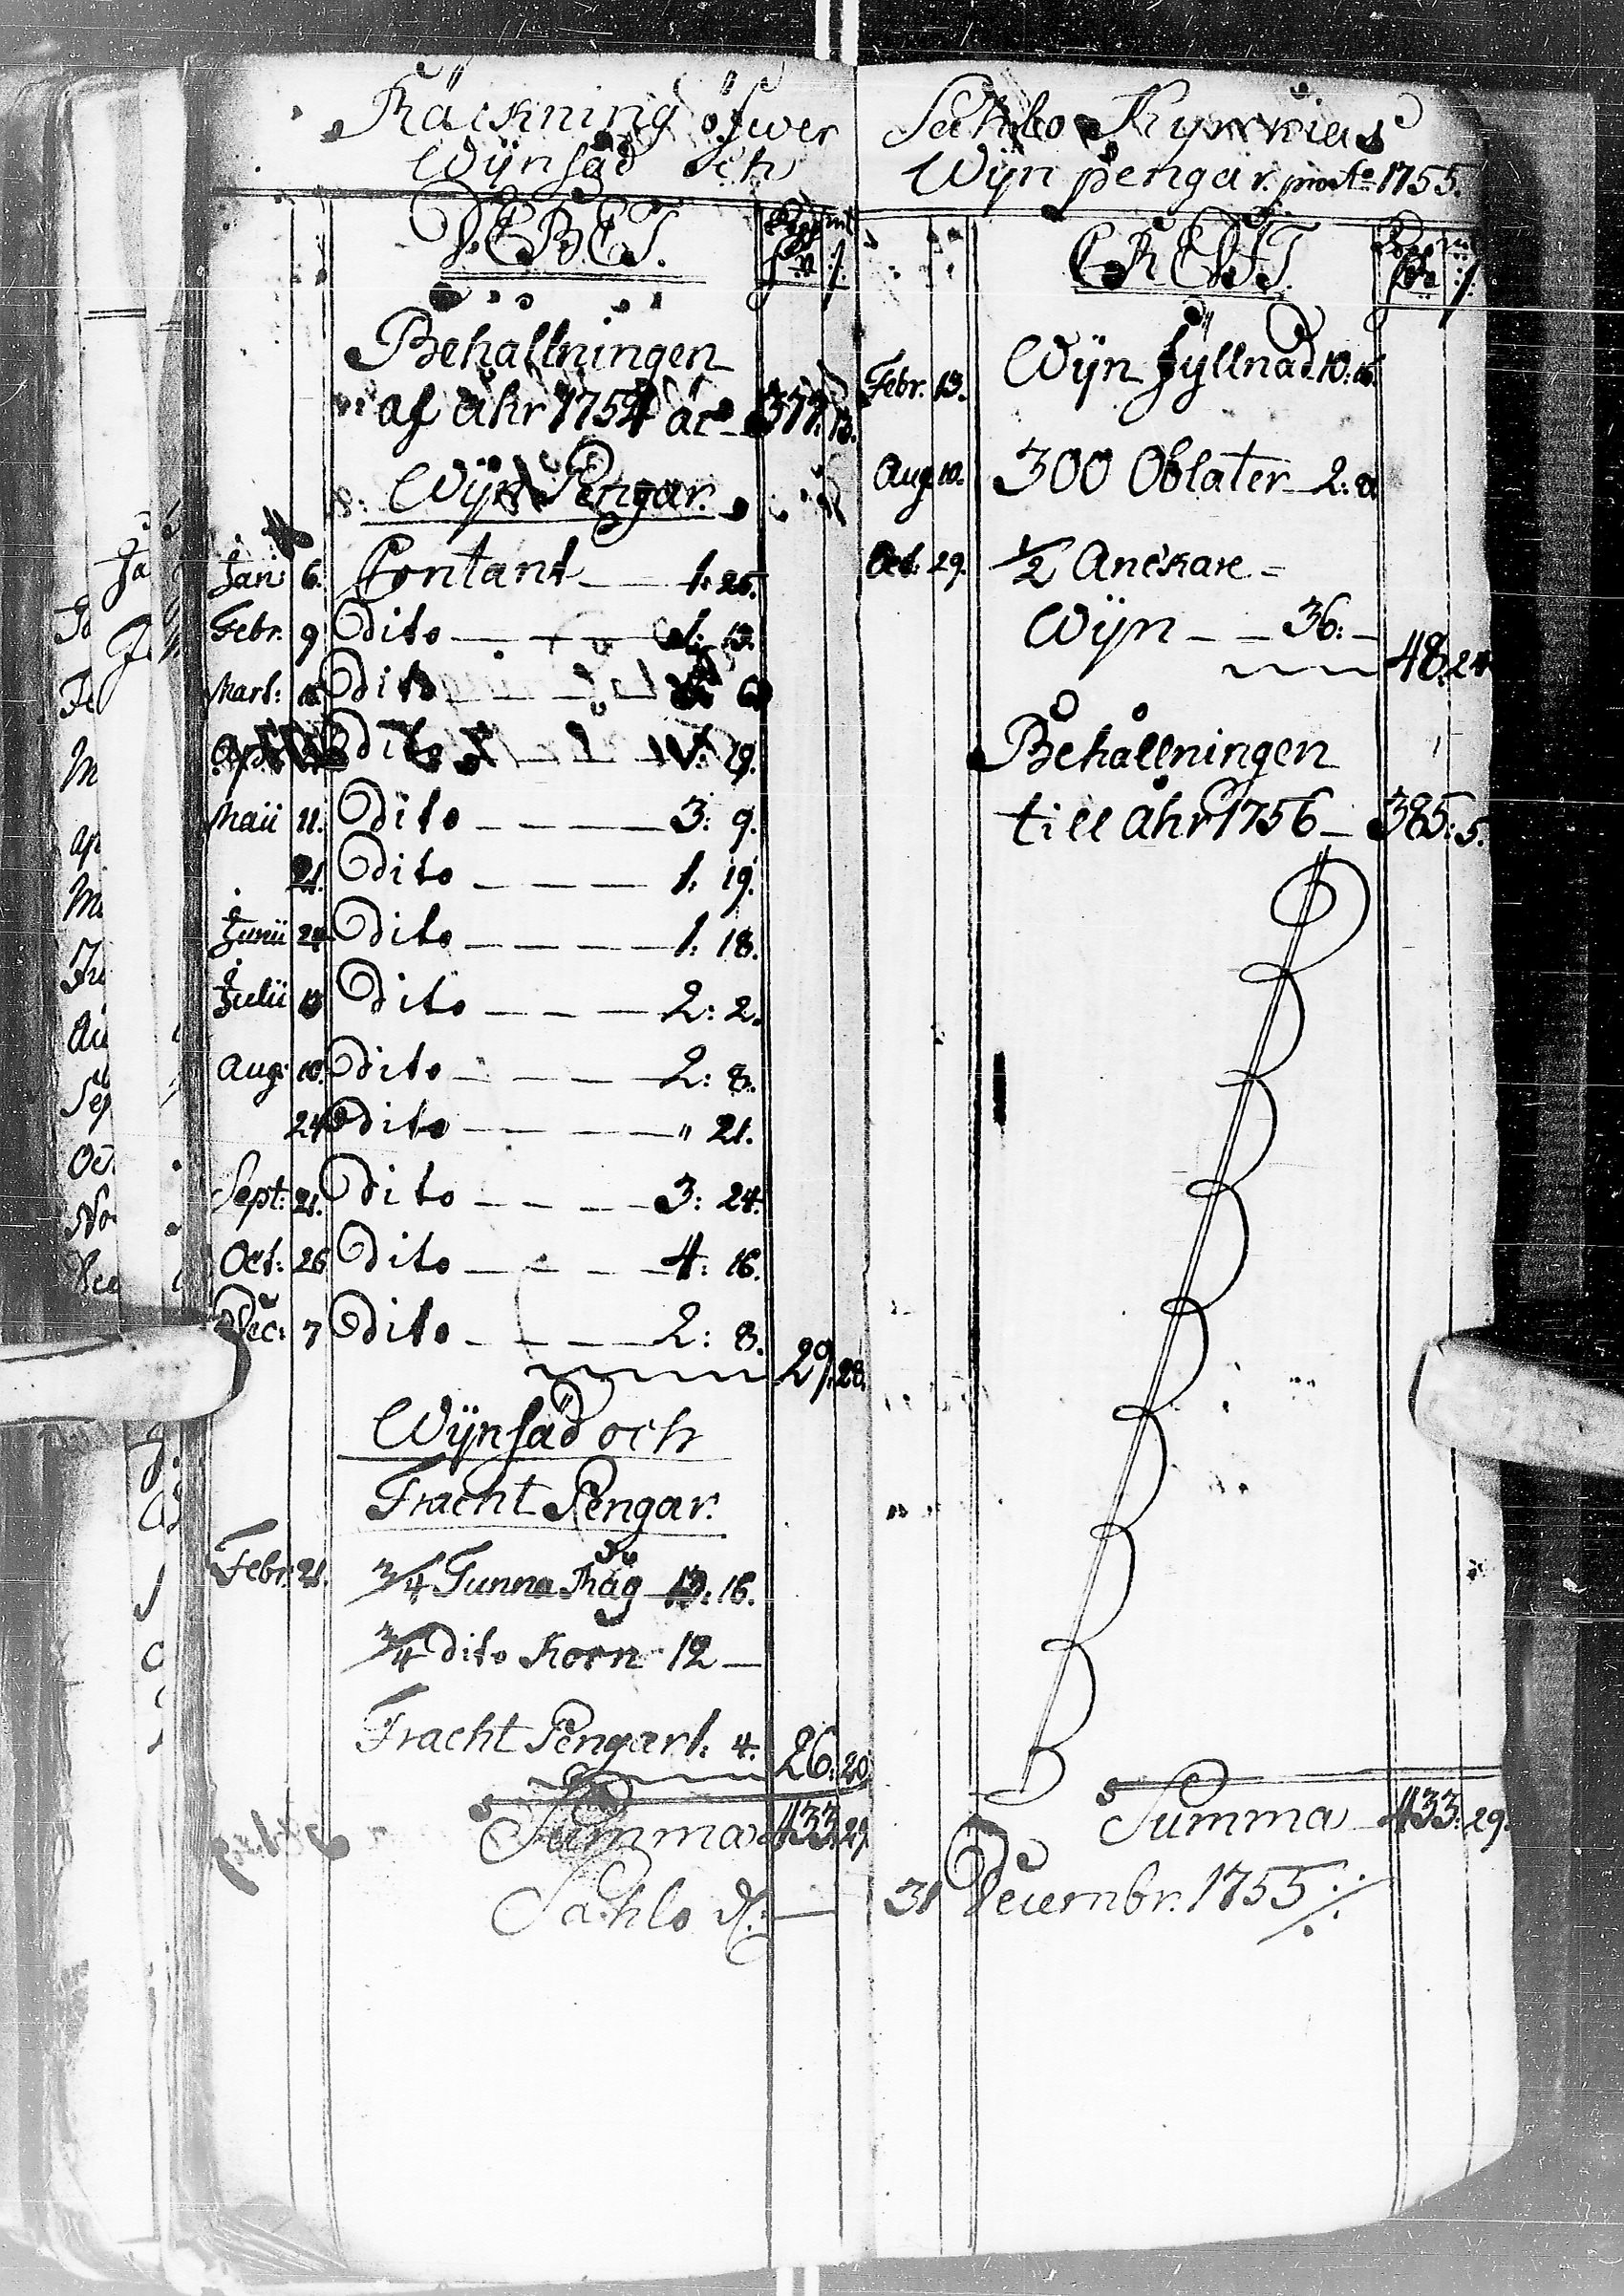 Räckning öfwer
Wÿnsäd och
DEBET.
Behållningen
af åhr 1754 är 377: 13.
Wÿn Pengar.
Jan: 6. Contant 1: 25.
Febr. 9 Dito 1: 13.
Mart: Dito
Dito 1: 19.
Maii 11. Dito 3: 9.
21. Dito 1: 19.
Junii 24 Dito 1: 18.
Julii 13 Dito 2: 2.
Aug: 10. Dito 2: 8.
24 Dito " 21.
Sept: 21. Dito 3: 24.
Oct: 26 Dito 4: 16.
Dec: 7 Dito 2: 8.
29: 28.
Wÿnsäd och
Fracht Pengar.
Febr: 21. 3/4 Tunna Råg 13: 16.
3/4 dito Korn 12 —
Fracht Pengar 1: 4. 26: 20
Summa 433: 29.
Sahlo d.
Sahlo Kyrkias
Wÿn pengar. pro Ao 1755.
CREDIT.
Febr. 13. Wÿn fyllnad 10: 16.
Aug 10. 300 Oblater 2: 8.
Oct: 29. 1/2 Anckare =
Wÿn — 36: —
48: 24
Behållningen
till åhr 1756 — 385: 5.
Summa 433: 29.
31 Decembr. 1755